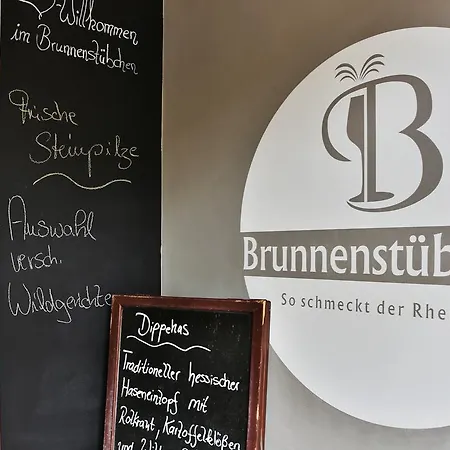 Willkommen
im Brunnenstübchen
Frische
Steinpilze
Auswahl
versch.
Wildgerichte
B
Brunnenstüb
So schmeckt der Rhe
Dippehas
Traditioneller hessischer
Haseneintopf mit
Rotkraut, Kartoffelklößen
und